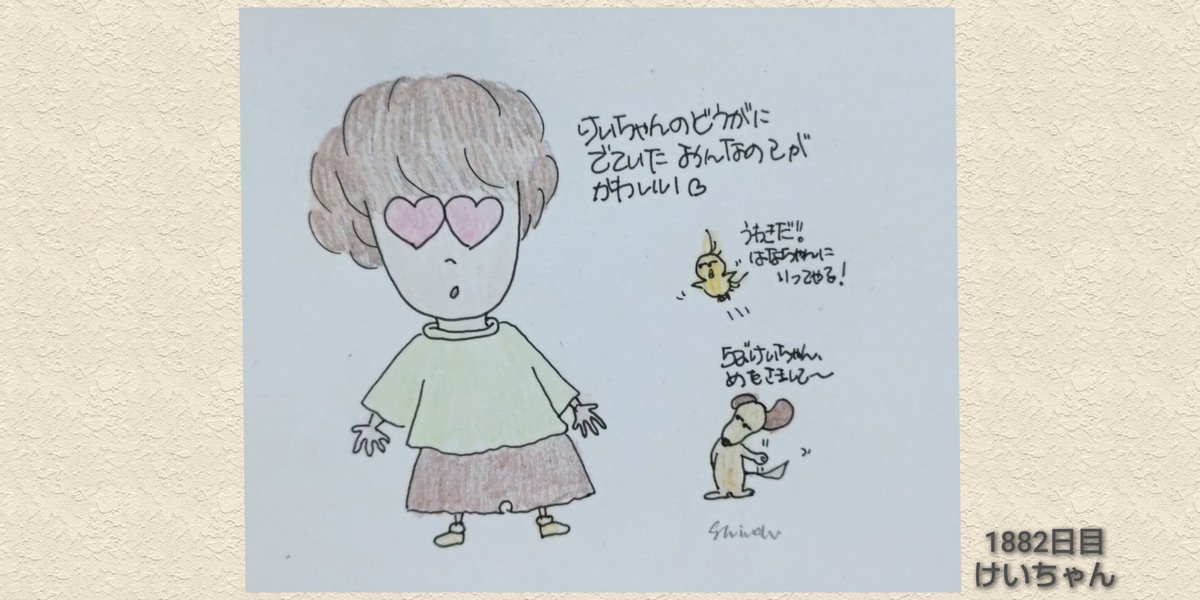 けいちゃんのどうがに
でていた おんなのこが
かわいい♡
うわきだ!!
はなちゃんに
いってやる!
ちびけいちゃん、
めをさまして〜
1882日目
けいちゃん